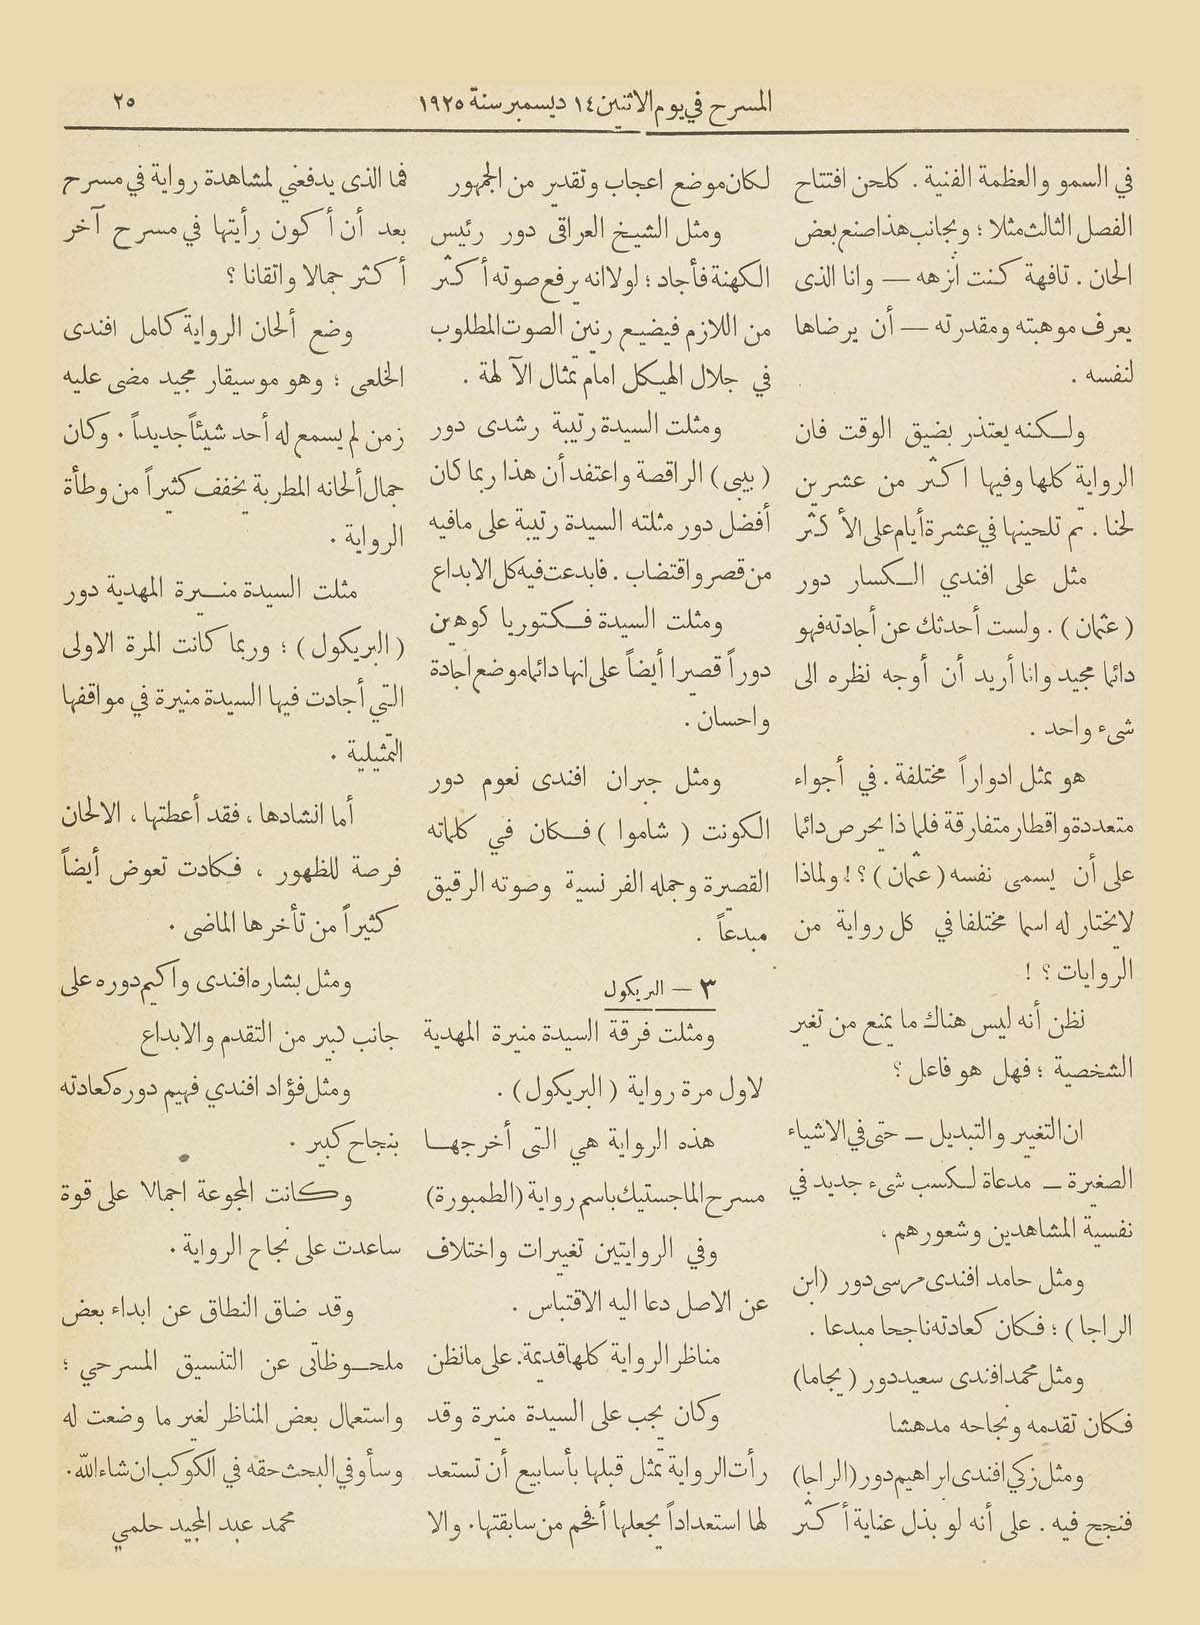 المسرح في يوم الاثنين ١٤ ديسمبر سنة ١٩٢٥
٢٥
في السمو والعظمة الفنية . كلحن افتتاح
الفصل الثالث مثلا ؛ وبجانب هذا صنع بعض
الحان . تافهة كنت أنزهه — وانا الذى
يعرف موهبته ومقدرته — أن يرضاها
لنفسه .
ولكنه يعتذر بضيق الوقت فان
الرواية كلها وفيها اكثر من عشرين
لحنا . تم تلحينها في عشرة أيام على الأكثر
مثل على افندي الكسار دور
( عثمان ) . ولست أحدثك عن أجادته فهو
دائما مجيد وانا أريد أن أوجه نظره الى
شىء واحد .
هو يمثل ادواراً مختلفة . في أجواء
متعددة واقطار متفارقة فلماذا يحرص دائما
على أن يسمى نفسه ( عثمان ) ؟ ! ولماذا
لا يختار له اسما مختلفا في كل رواية من
الروايات ؟ !
نظن أنه ليس هناك ما يمنع من تغير
الشخصية ؛ فهل هو فاعل ؟
ان التغيير والتبديل — حتى في الاشياء
الصغيرة — مدعاة لكسب شىء جديد في
نفسية المشاهدين وشعورهم ،
ومثل حامد افندى مرسى دور ( ابن
الراجا ) ؛ فكان كعادته ناجحا مبدعا .
ومثل محمد افندى سعيد دور ( يجاما )
فكان تقدمه ونجاحه مدهشا
ومثل زكي افندى ابراهيم دور ( الراجا )
فنجح فيه . على أنه لو بذل عناية أكثر
لكان موضع اعجاب وتقدير من الجمهور
ومثل الشيخ العراقى دور رئيس
الكهنة فأجاد ؛ لولا انه يرفع صوته أكثر
من اللازم فيضيع رنين الصوت المطلوب
في جلال الهيكل امام تمثال الآلهة .
ومثلت السيدة رتيبة رشدى دور
( بيبى ) الراقصة واعتفد أن هذا ربما كان
أفضل دور مثلته السيدة رتيبة على مافيه
من قصر واقتضاب . فابدعت فيه كل الابداع
ومثلت السيدة فكتوريا كوهين
دوراً قصيرا أيضاً على انها دائما موضع اجادة
واحسان .
ومثل جبران افندى نعوم دور
الكونت ( شاموا ) فكان في كلماته
القصيرة وجمله الفرنسية وصوته الرقيق
مبدعاً .
٣ — البريكول
ومثلت فرقة السيدة منيرة المهدية
لاول مرة رواية ( البريكول ) .
هذه الرواية هي التى أخرجها
مسرح الماجستيك باسم رواية ( الطمبورة )
وفي الروايتين تغييرات واختلاف
عن الاصل دعا اليه الاقتباس .
مناظر الرواية كلها قديمة . على مانظن
وكان يجب على السيدة منيرة وقد
رأت الرواية تمثل قبلها بأسابيع أن تستعد
لها استعداداً يجعلها أفخم من سابقتها . والا
فما الذى يدفعني لمشاهدة رواية في مسرح
بعد أن أكون رأيتها في مسرح آخر
أكثر جمالا واتقانا ؟
وضع ألحان الرواية كامل افندى
الخلعى ؛ وهو موسيقار مجيد مضى عليه
زمن لم يسمع له أحد شيئاً جديداً . وكان
جمال ألحانه المطربة يخفف كثيراً من وطأة
الرواية .
مثلت السيدة منيرة المهدية دور
( البريكول ) ؛ وربما كانت المرة الاولى
التي أجادت فيها السيدة منيرة في مواقفها
التمثيلية .
أما انشادها ، فقد أعطتها ، الالحان
فرصة للظهور ، فكادت تعوض أيضاً
كثيراً من تأخرها الماضى .
ومثل بشاره افندى واكيم دوره على
جانب كبير من التقدم والابداع
ومثل فؤاد افندي فهيم دوره كعادته
بنجاح كبير .
وكانت المجموعة اجمالا على قوة
ساعدت على نجاح الرواية .
وقد ضاق النطاق عن ابداء بعض
ملحوظاتى عن التنسيق المسرحي ؛
واستعمال بعض المناظر لغير ما وضعت له
وسأوفي البحث حقه في الكوكب ان شاء الله .
محمد عبد المجيد حلمي